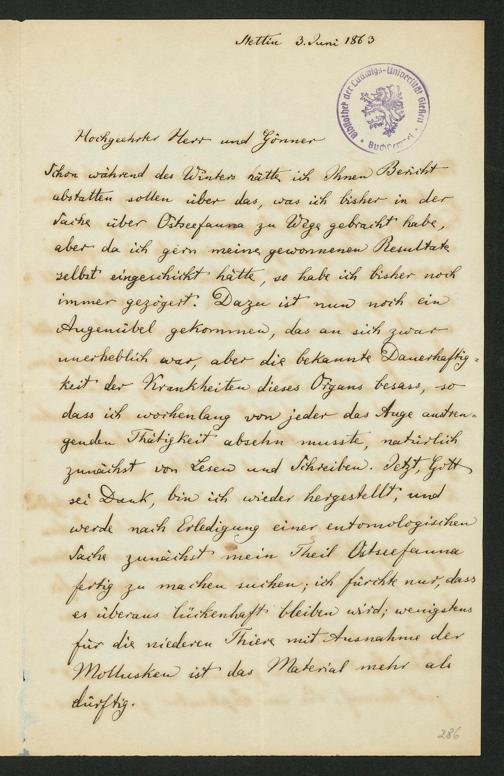 Stettin 3. Juni 1863
Bibliothek der Ludwigs-Universität Gießen
Hochgeehrter Herr und Gönner
Schon während des Winters hätte ich Ihnen Bericht
abstatten sollen über das, was ich bisher in der
Sache über Ostseefauna zu Wege gebracht habe,
aber da ich gern meine gewonnenen Resultate
selbst eingeschickt hätte, so habe ich bisher noch
immer gezögert. Dazu ist nun noch ein
Augenübel gekommen, das an sich zwar
unerheblich war, aber die bekannte Dauerhaftig-
keit der Krankheiten dieses Organs besass, so
dass ich wochenlang von jeder das Auge anstren-
genden Thätigkeit absehn musste, natürlich
zunächst von Lesen und Schreiben. Jetzt, Gott
sei Dank, bin ich wieder hergestellt, und
werde nach Erledigung einer entomologischen
Sache zunächst mein Theil Ostseefauna
fertig zu machen suchen; ich fürchte nur, dass
es überaus lückenhaft bleiben wird; wenigstens
für die niederen Thiere mit Ausnahme der
Mollusken ist das Material mehr als
dürftig.
286